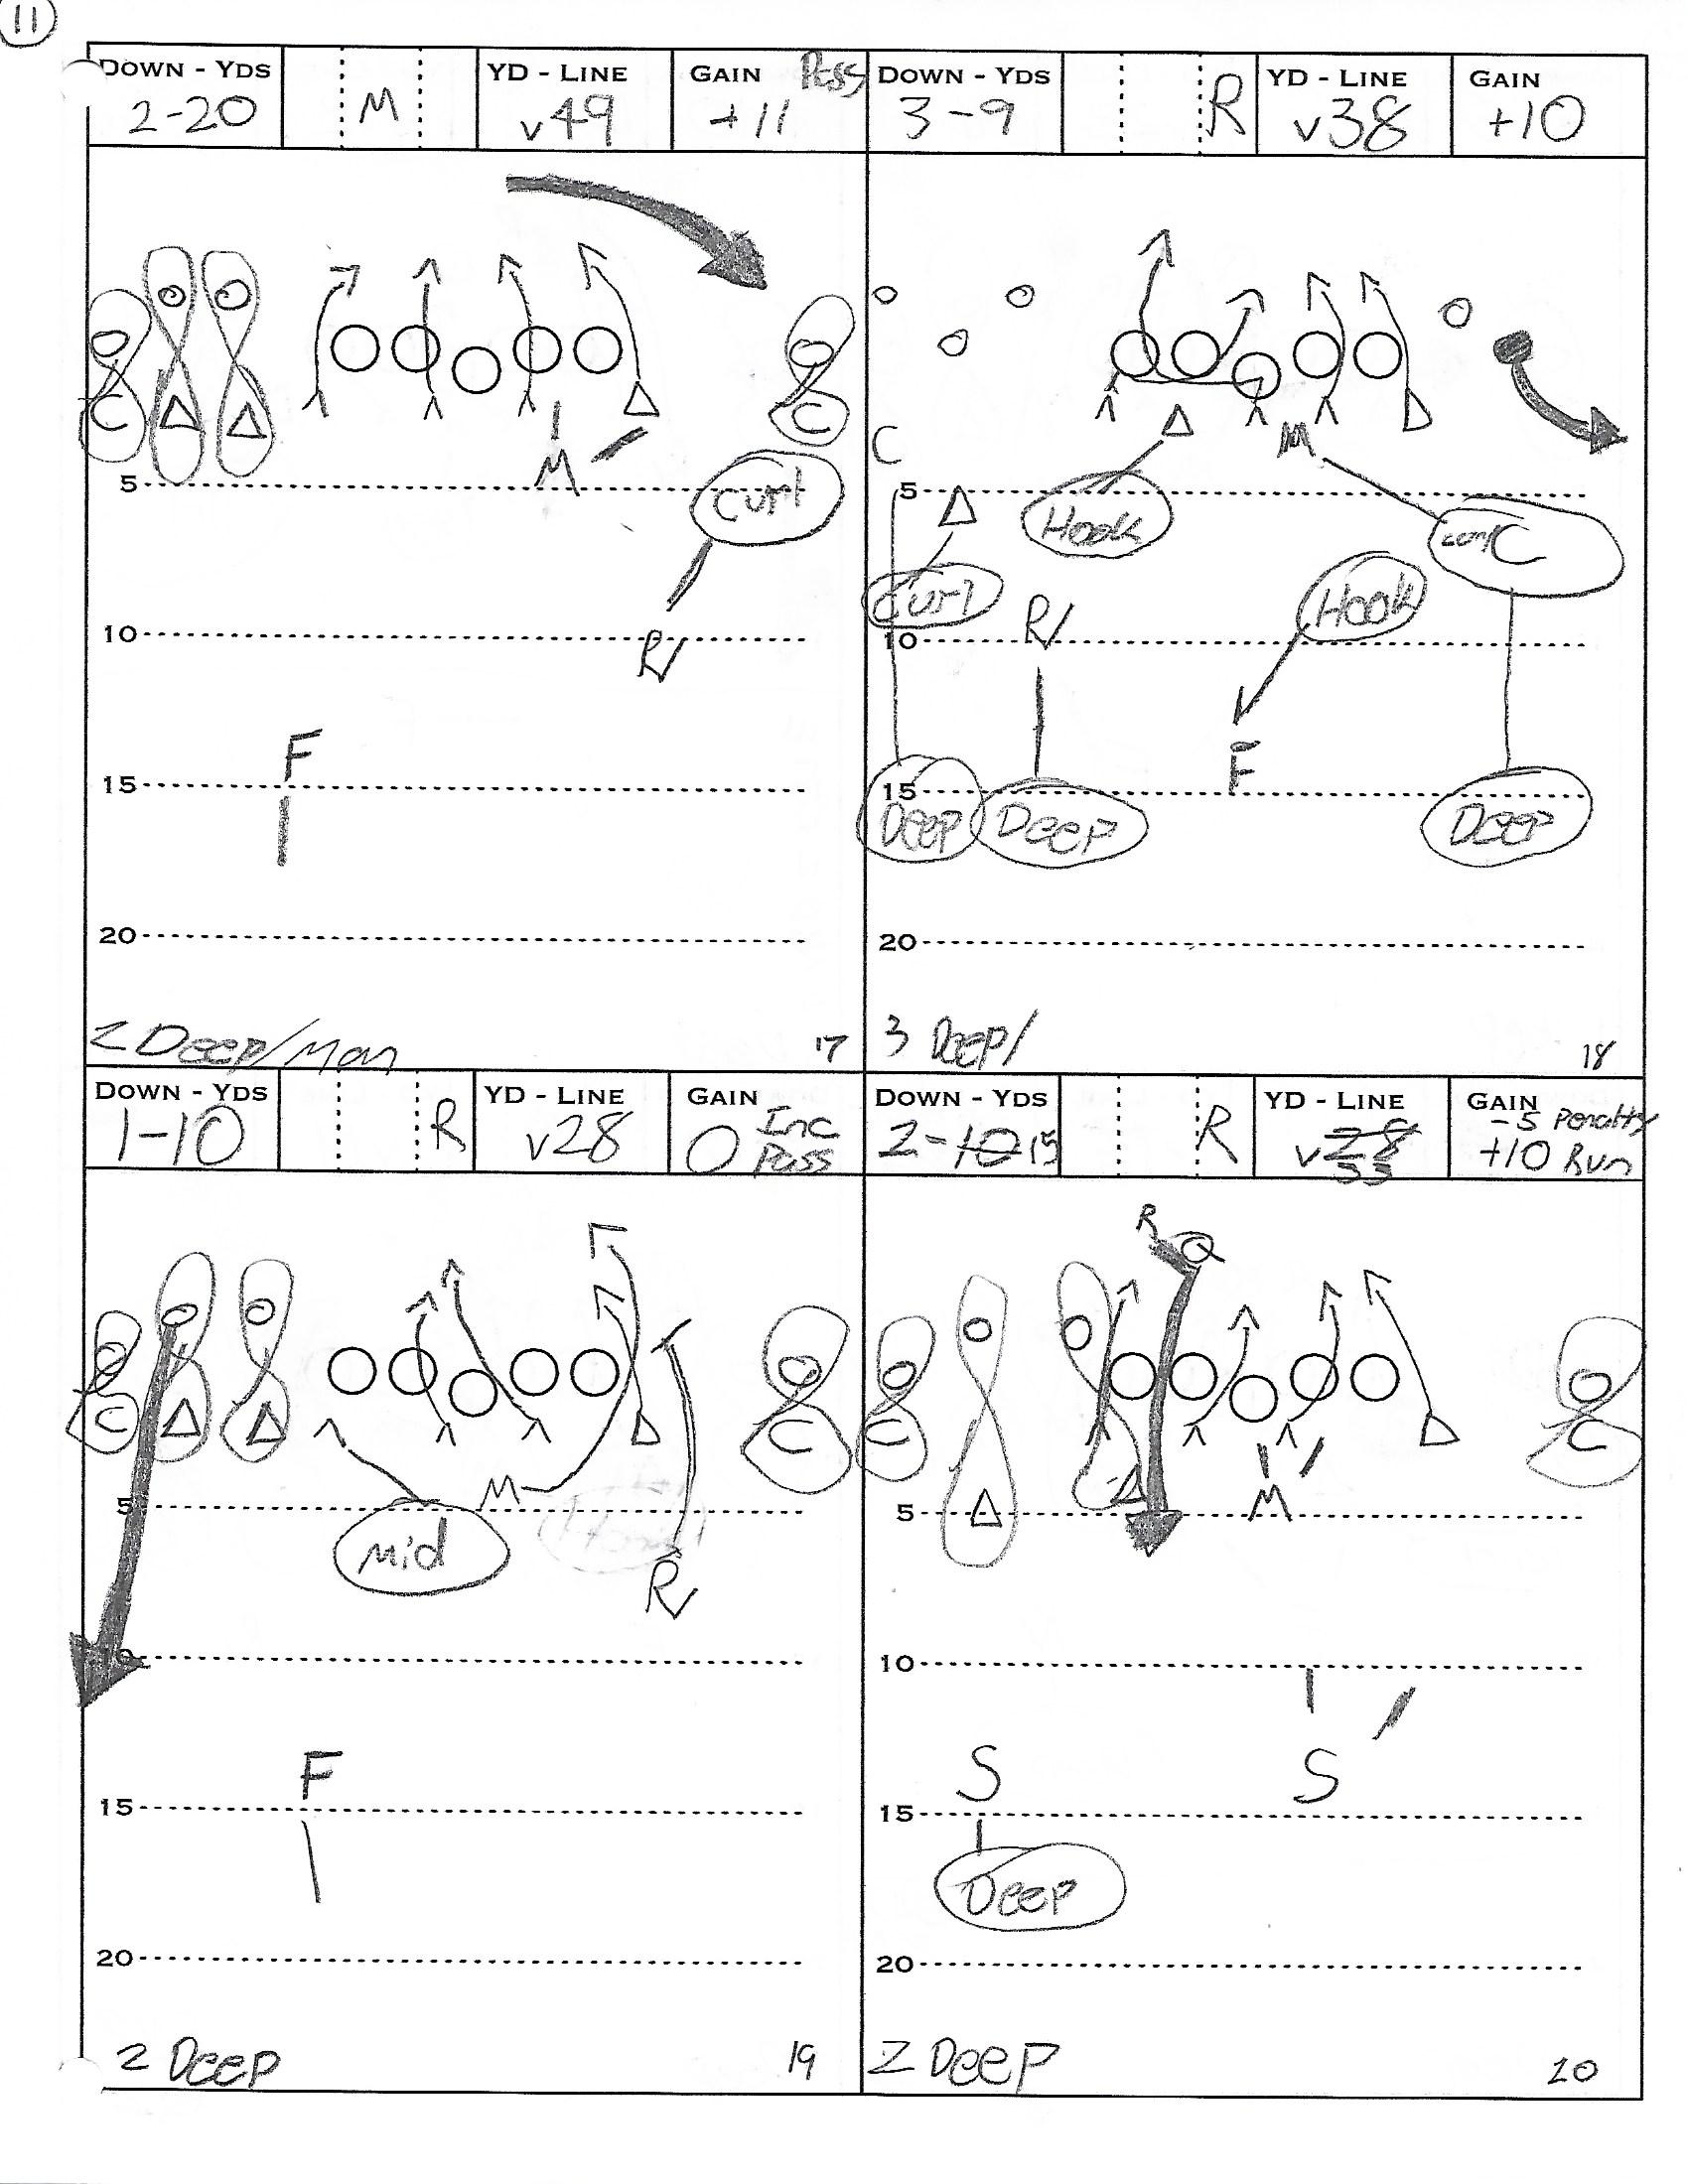 11
DOWN - YDS YD - LINE GAIN Pass
2-20 M v49 +11
C C
M
5 Curl
10
R
F
15
20
2 Deep/Man 17
DOWN - YDS YD - LINE GAIN
3-9 R v38 +10
C M
5 Hook C
Curl R Hook
10
F
15
Deep Deep Deep
20
3 Deep/ 18
DOWN - YDS YD - LINE GAIN
1-10 R v28 0 Inc Pass
C C
M
5
Mid
R
10
F
15
20
2 Deep 19
DOWN - YDS YD - LINE GAIN
2-10 15 R v28 33 -5 Penalty
+10 Run
R
C C
M
5
10
S S
15
Deep
20
2 Deep 20